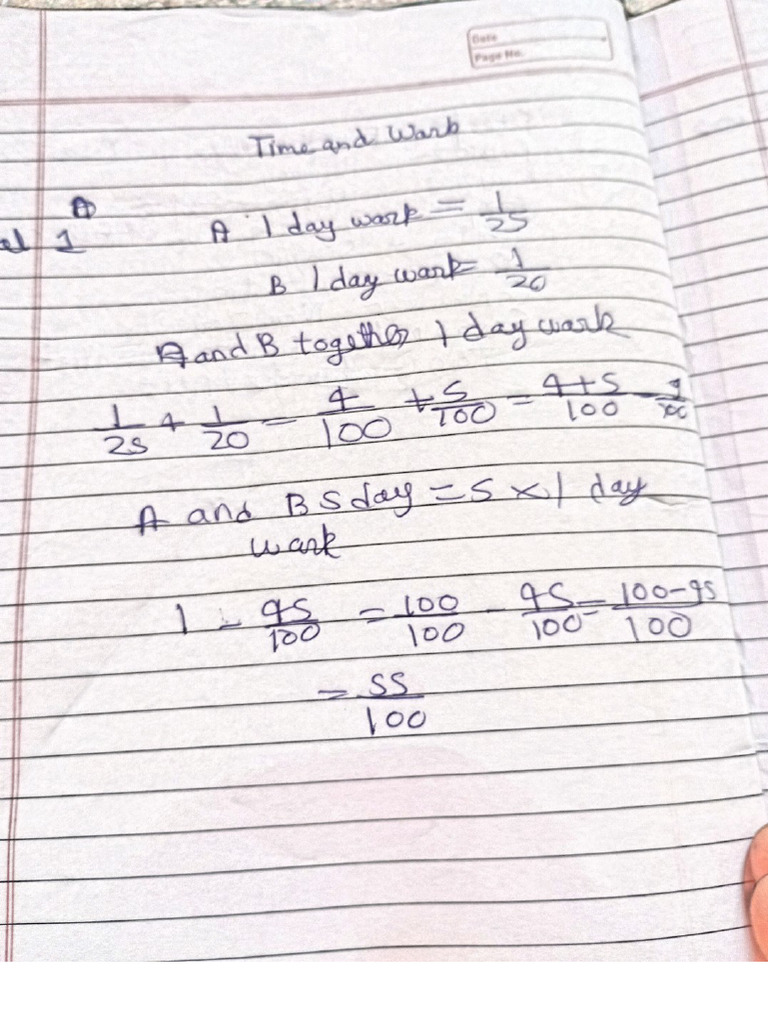 Date
Page No.
Time and Wark
A
1
A 1 day wark = 1/25
B 1 day wark = 1/20
A and B together 1 day wark
1/25 + 1/20 = 4/100 + 5/100 = 4+5/100 = 9/100
A and B 5 day = 5 × 1 day
wark
1 - 45/100 = 100/100 - 45/100 = 100-45/100
= 55/100